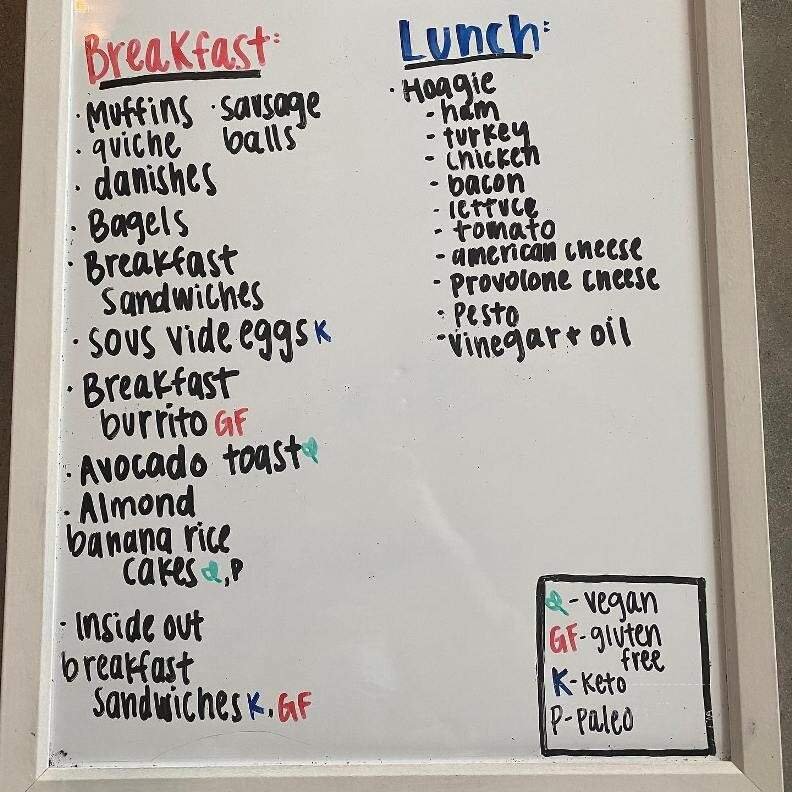 Breakfast:
· Muffins · sausage
balls
· quiche
· danishes
· Bagels
· Breakfast
sandwiches
· sous vide eggs K
· Breakfast
burrito GF
· Avocado toast
· Almond
banana rice
cakes , P
· Inside out
breakfast
sandwiches K, GF
Lunch:
· Hoagie
- ham
- turkey
- chicken
- bacon
- lettuce
- tomato
- american cheese
- provolone cheese
- Pesto
- vinegar + oil
- vegan
GF- gluten
free
K- Keto
P- paleo